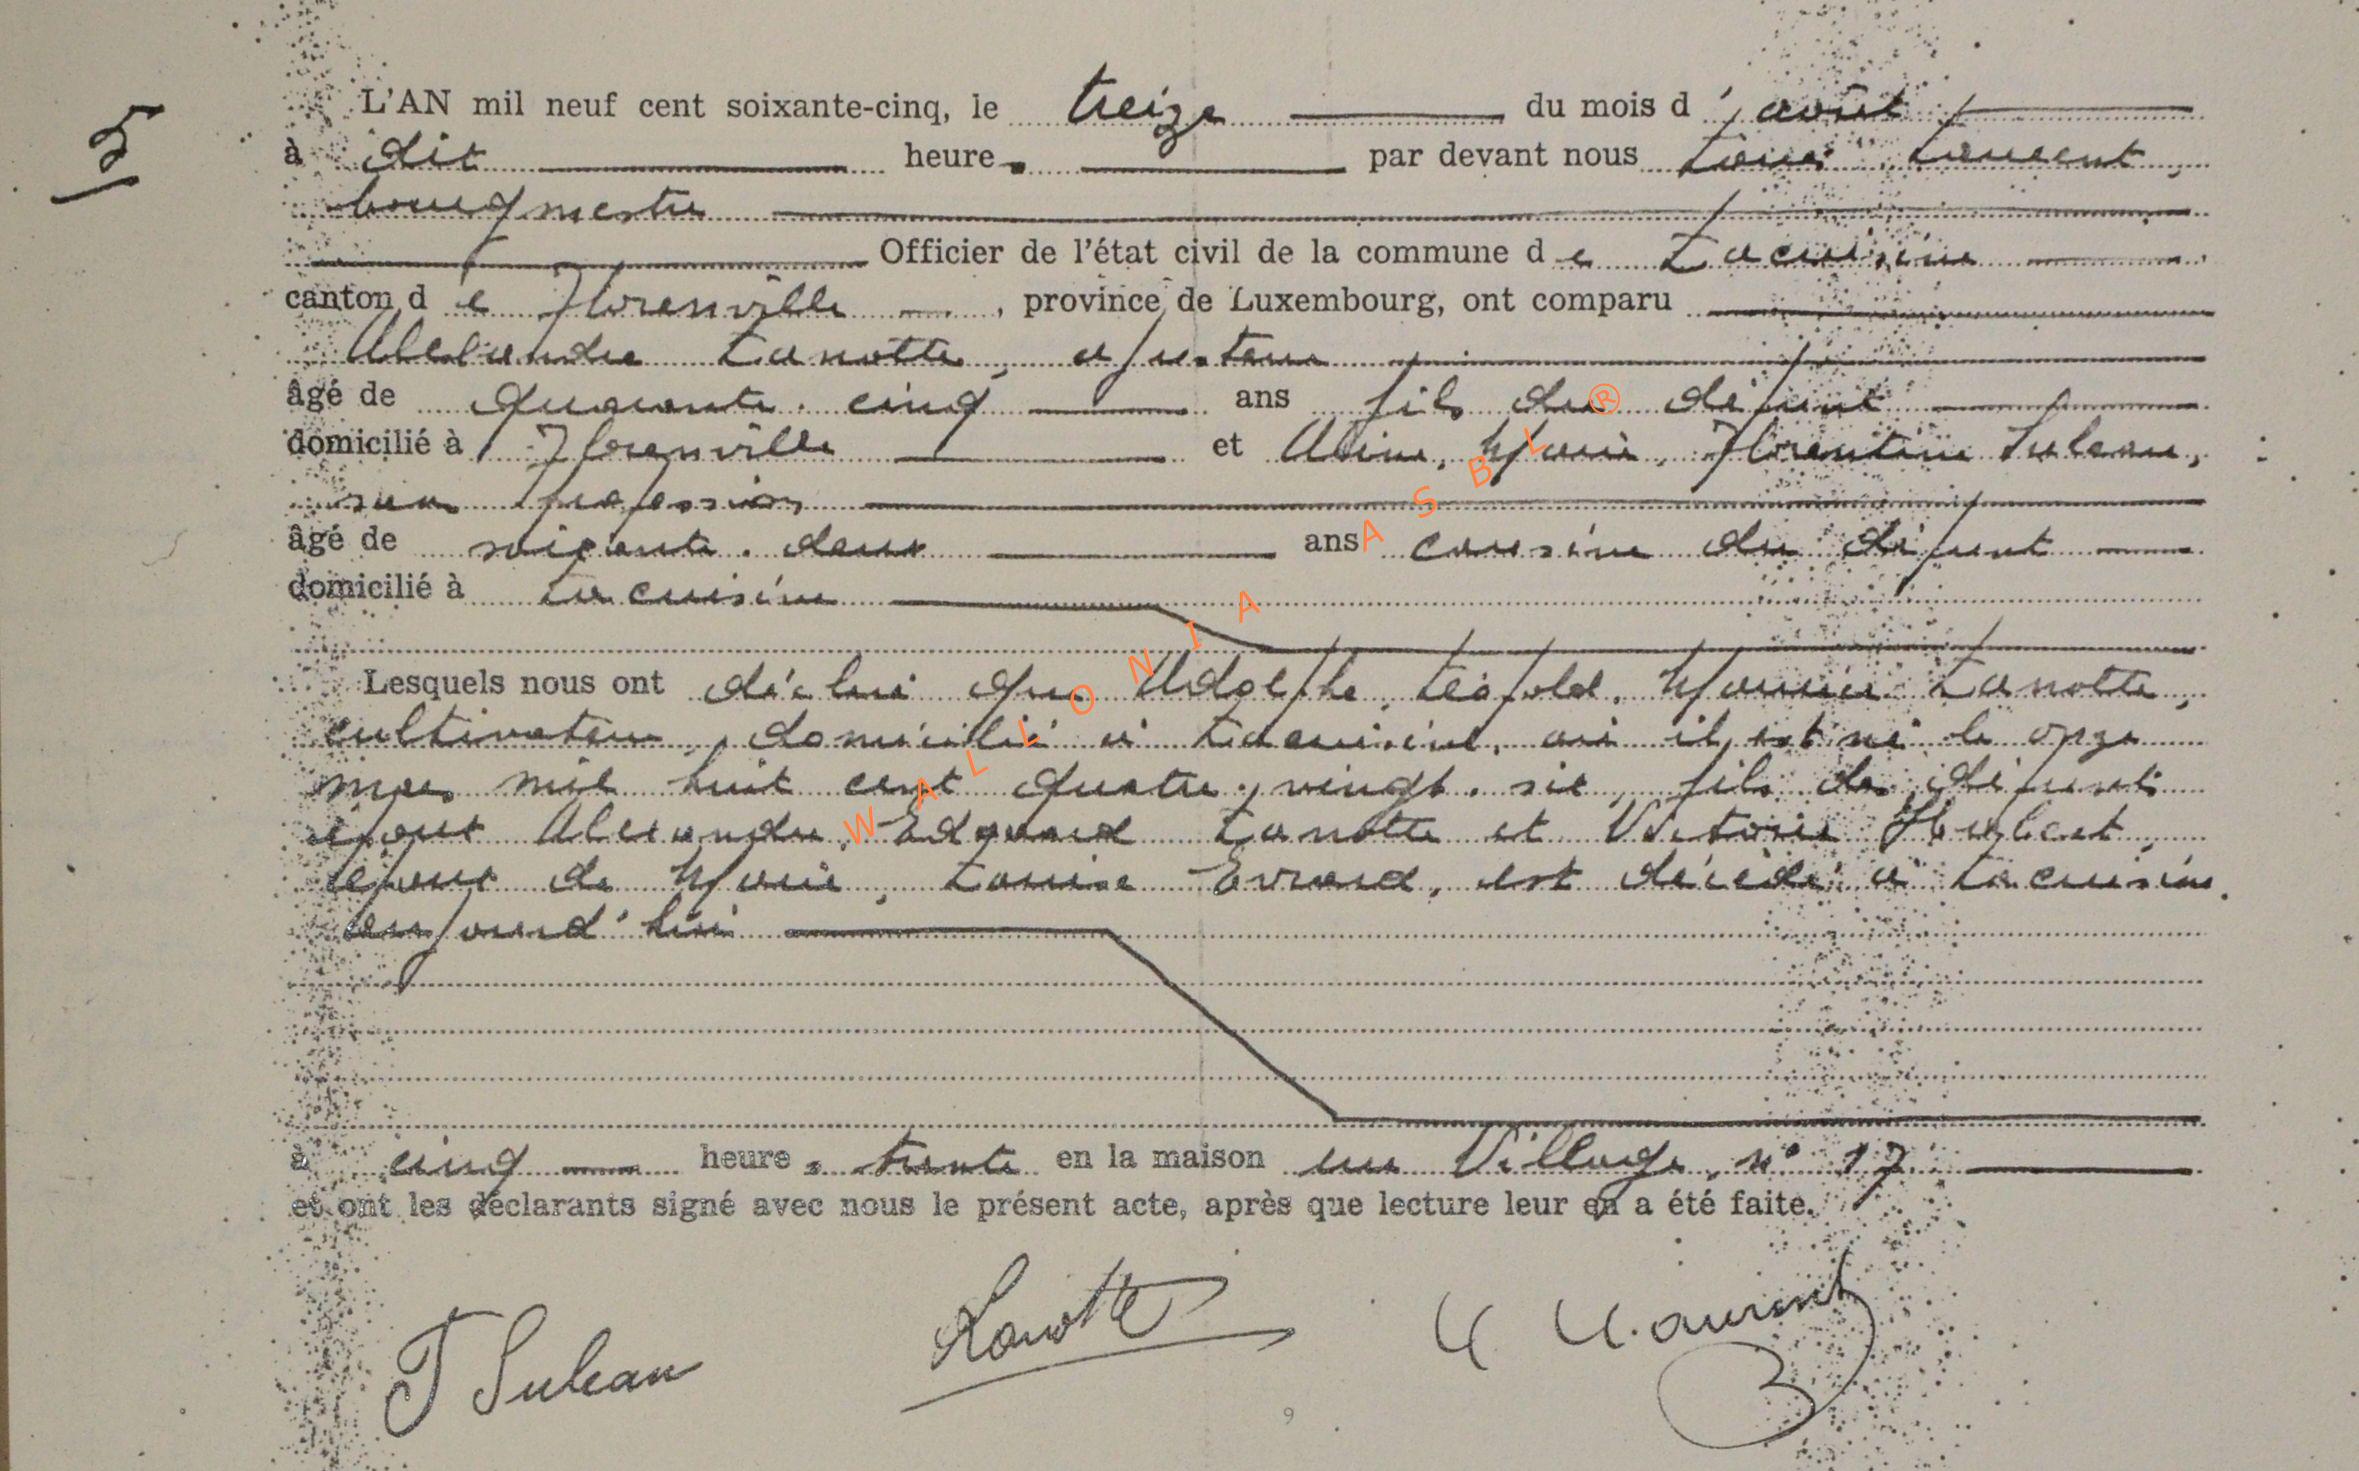 5
L'AN mil neuf cent soixante-cinq, le treize du mois d'août
à dix heures par devant nous Louis Laurent,
bourgmestre
Officier de l'état civil de la commune de Lacuisine
canton de Florenville, province de Luxembourg, ont comparu
Alexandre Lanotte, ajusteur
âgé de quarante-cinq ans fils du défunt
domicilié à Florenville et Marie, Florentine Suleau,
sans profession
âgé de soixante-deux ans cousine du défunt
domicilié à Lacuisine
Lesquels nous ont déclaré que Adolphe, Léopold, Lanotte,
cultivateur, domicilié à Lacuisine, où il est né le onze
mars mil huit cent quatre-vingt-six, fils des défunts
époux Alexandre, Edouard Lanotte et Victoire Hubert,
époux de Marie, Louise Evrard, est décédé à Lacuisine,
aujourd'hui
à cinq heures trente en la maison au Village, n° 17
et ont les déclarants signé avec nous le présent acte, après que lecture leur en a été faite.
F Suleau Lanotte L Laurent
9
WALLONIA ASBL ®